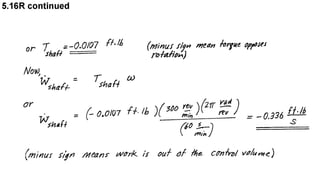 5.16R continued
or T shaft = -0.0107 ft.lb (minus sign mean torque opposes rotation)
Now,
Ẇ shaft = T shaft ω
or
Ẇ shaft = (-0.0107 ft.lb)(300 rev/min)(2π rad/rev) / (60 s/min) = -0.336 ft.lb/s
(minus sign means work is out of the control volume)